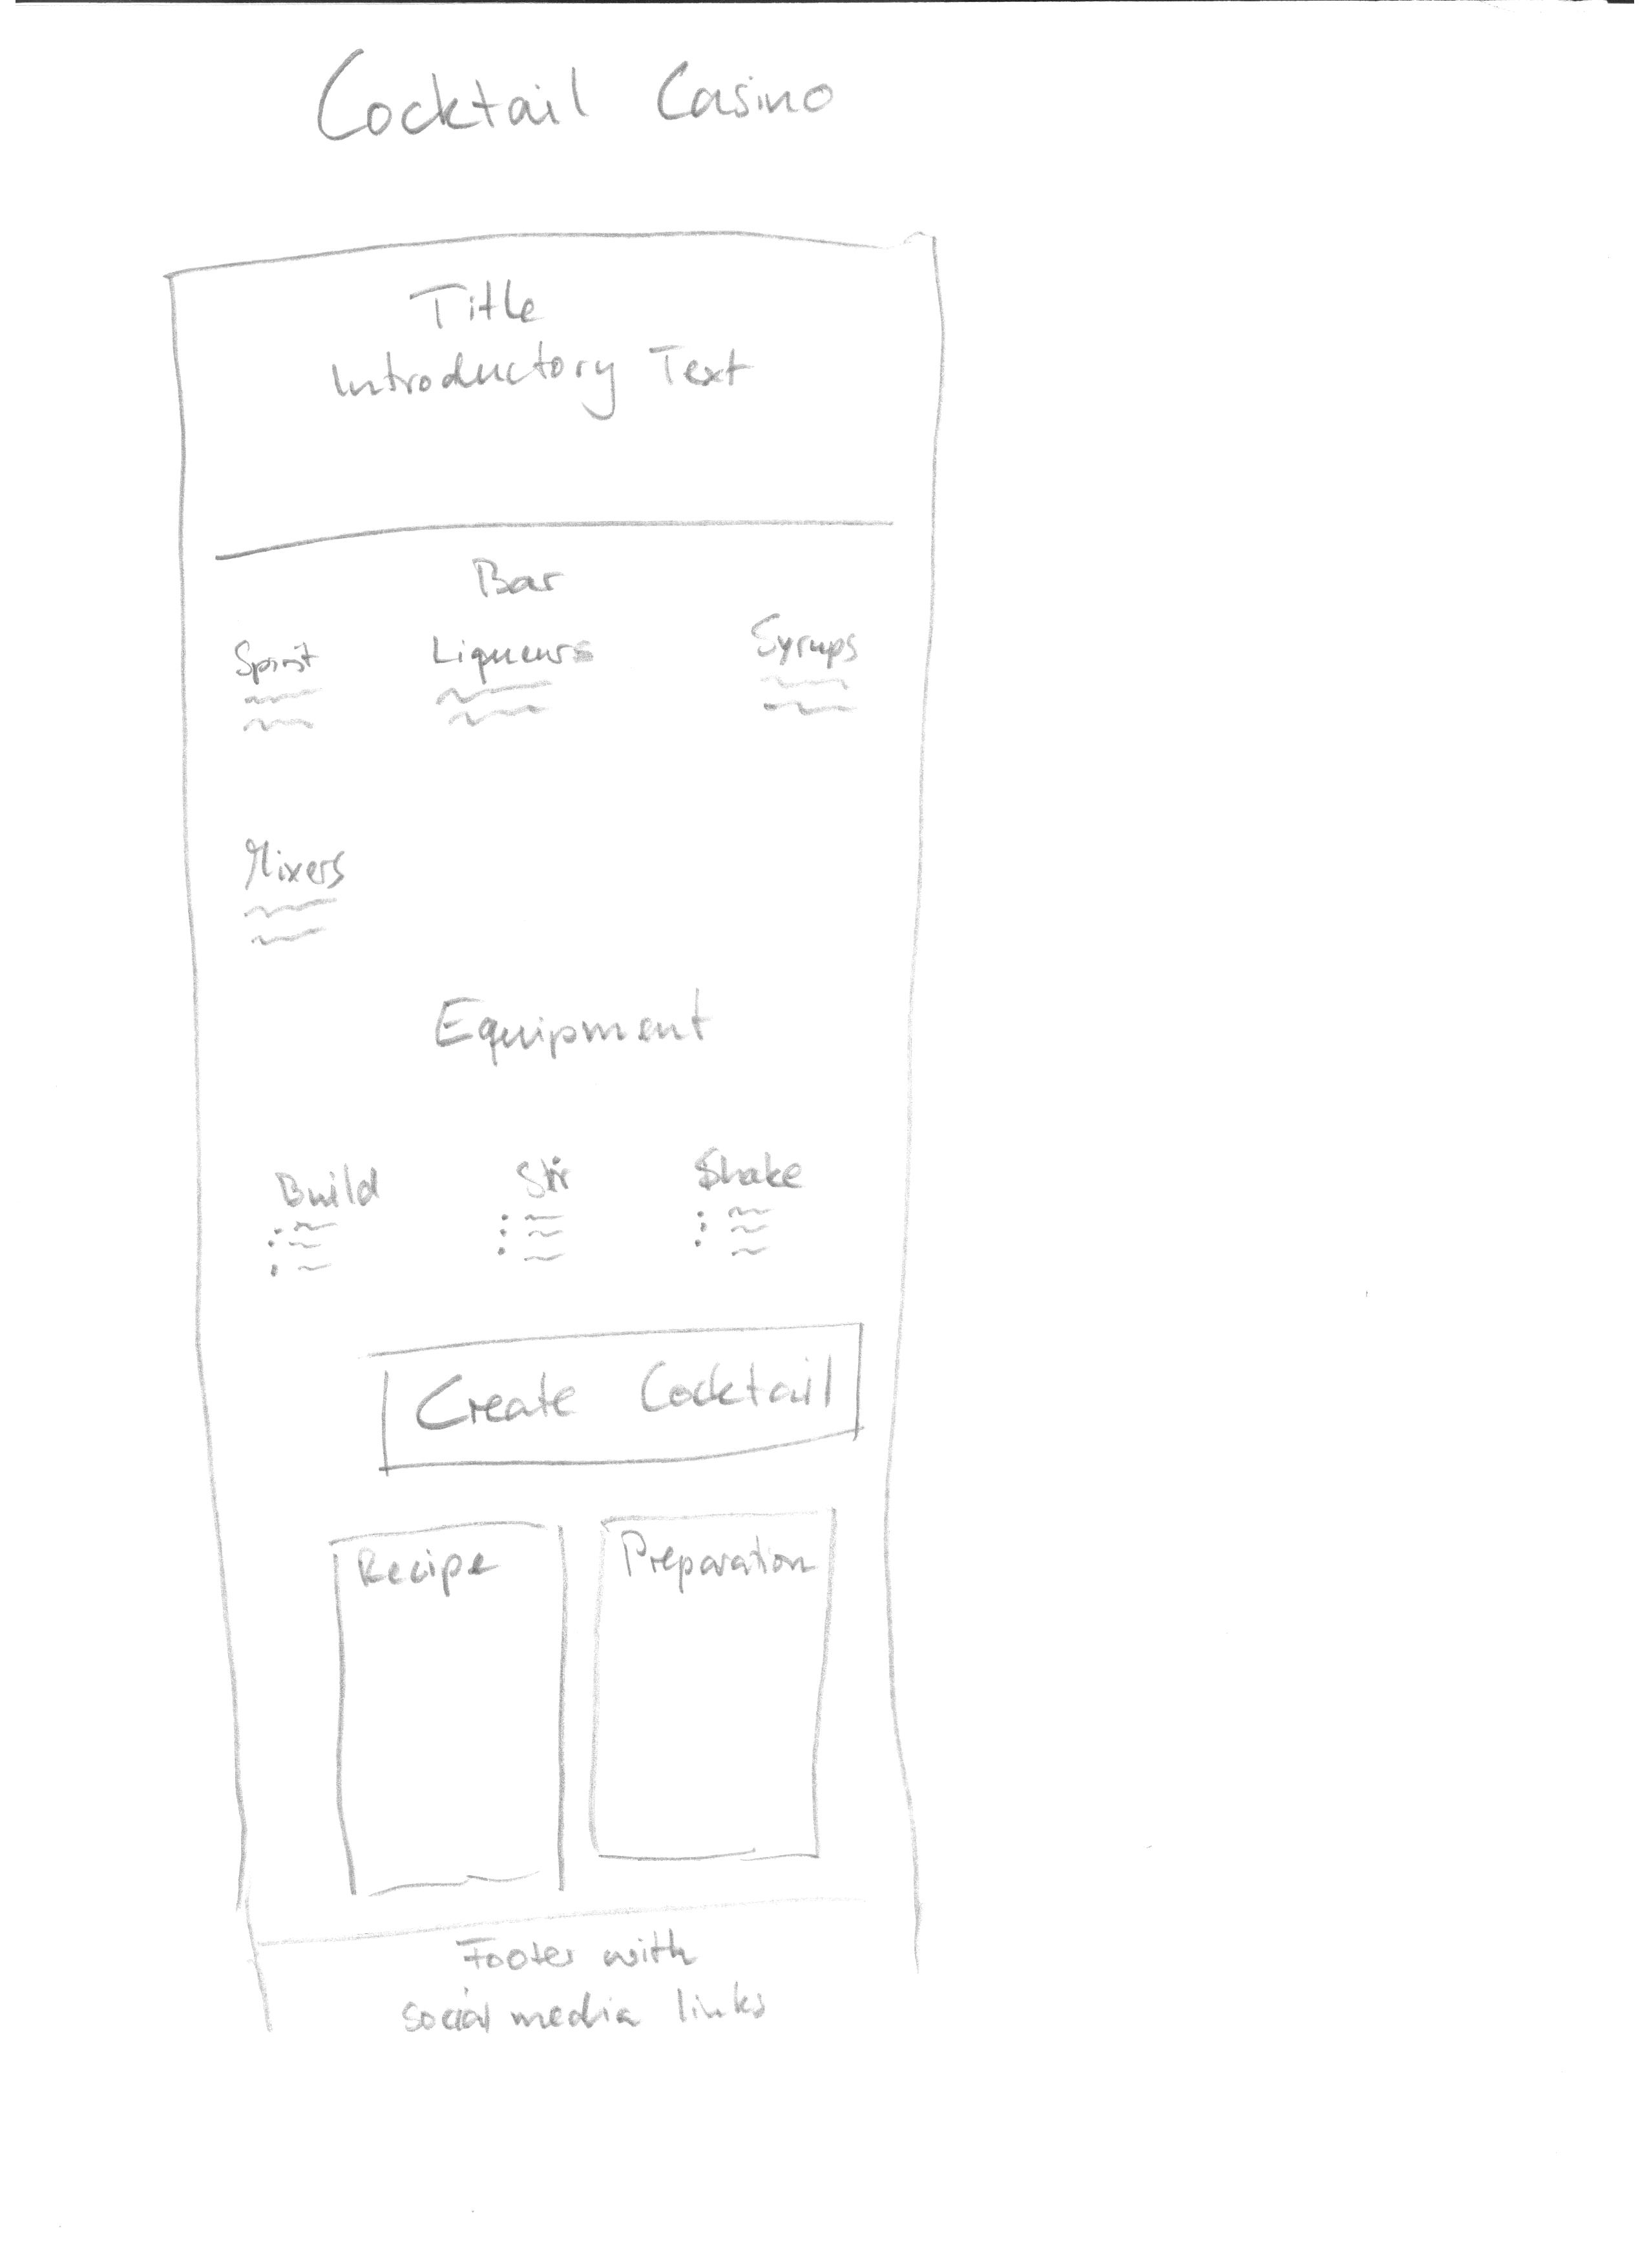 Cocktail Casino
Title
Introductory Text
Bar
Spirit Liqueurs Syrups
Mixers
Equipment
Build Stir Shake
Create Cocktail
Recipe Preparation
Footer with
social media links